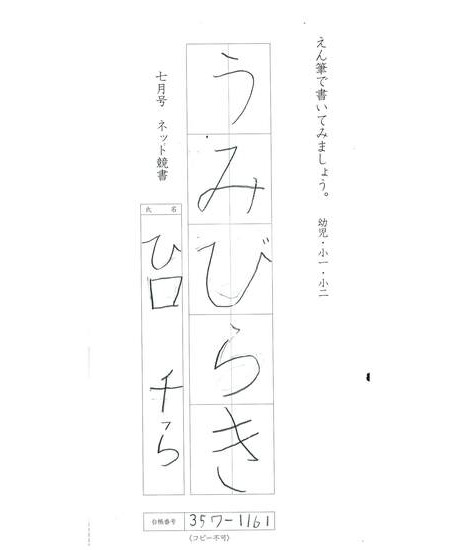 えん筆で書いてみましょう。 幼児・小一・小二
うみびらき
七月号 ネット競書
氏名
ひ口 千ら
台帳番号 357-1161
(コピー不可)